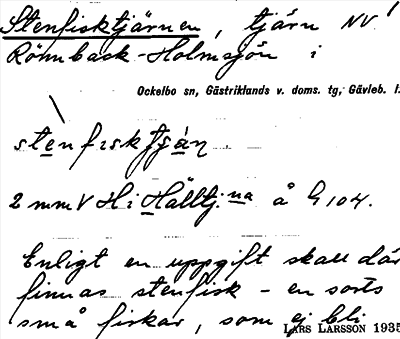 Stenfisktjärnen, tjärn NV
Rönnback-Holmsjön i
Ockelbo sn, Gästriklands v. doms. tg, Gävleb. l:
stenfisktjạ́n.
2 mm V H i Hälltj.na å G 104.
Enligt en uppgift skall där
finnas stenfisk - en sorts
små fiskar, som ej bli
LARS LARSSON 1935